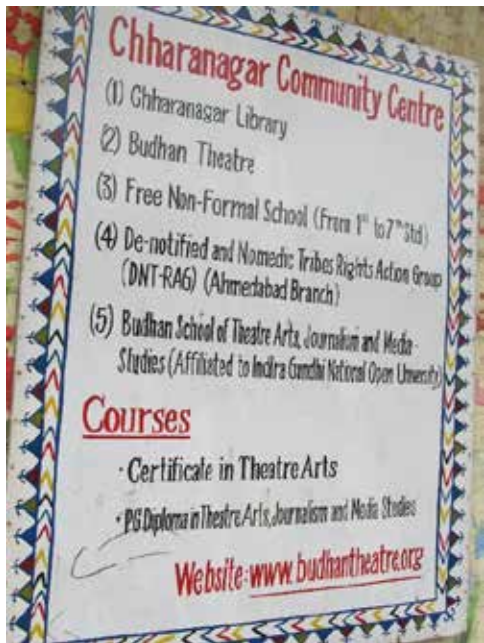 Chharanagar Community Centre
(1) Chharanagar Library
(2) Budhan Theatre
(3) Free Non-Formal School (From 1st to 7th Std)
(4) De-notified and Nomedic Tribes Rights Action Group
(DNT-RAG) (Ahmedabad Branch)
(5) Budhan School of Theatre Arts, Journalism and Media
Studies (Affiliated to Indira Gundhi National Open University)
Courses
· Certificate in Theatre Arts
· PG Diploma in Theatre Arts, Journalism and Media Studies
Website: www.budhantheatre.org